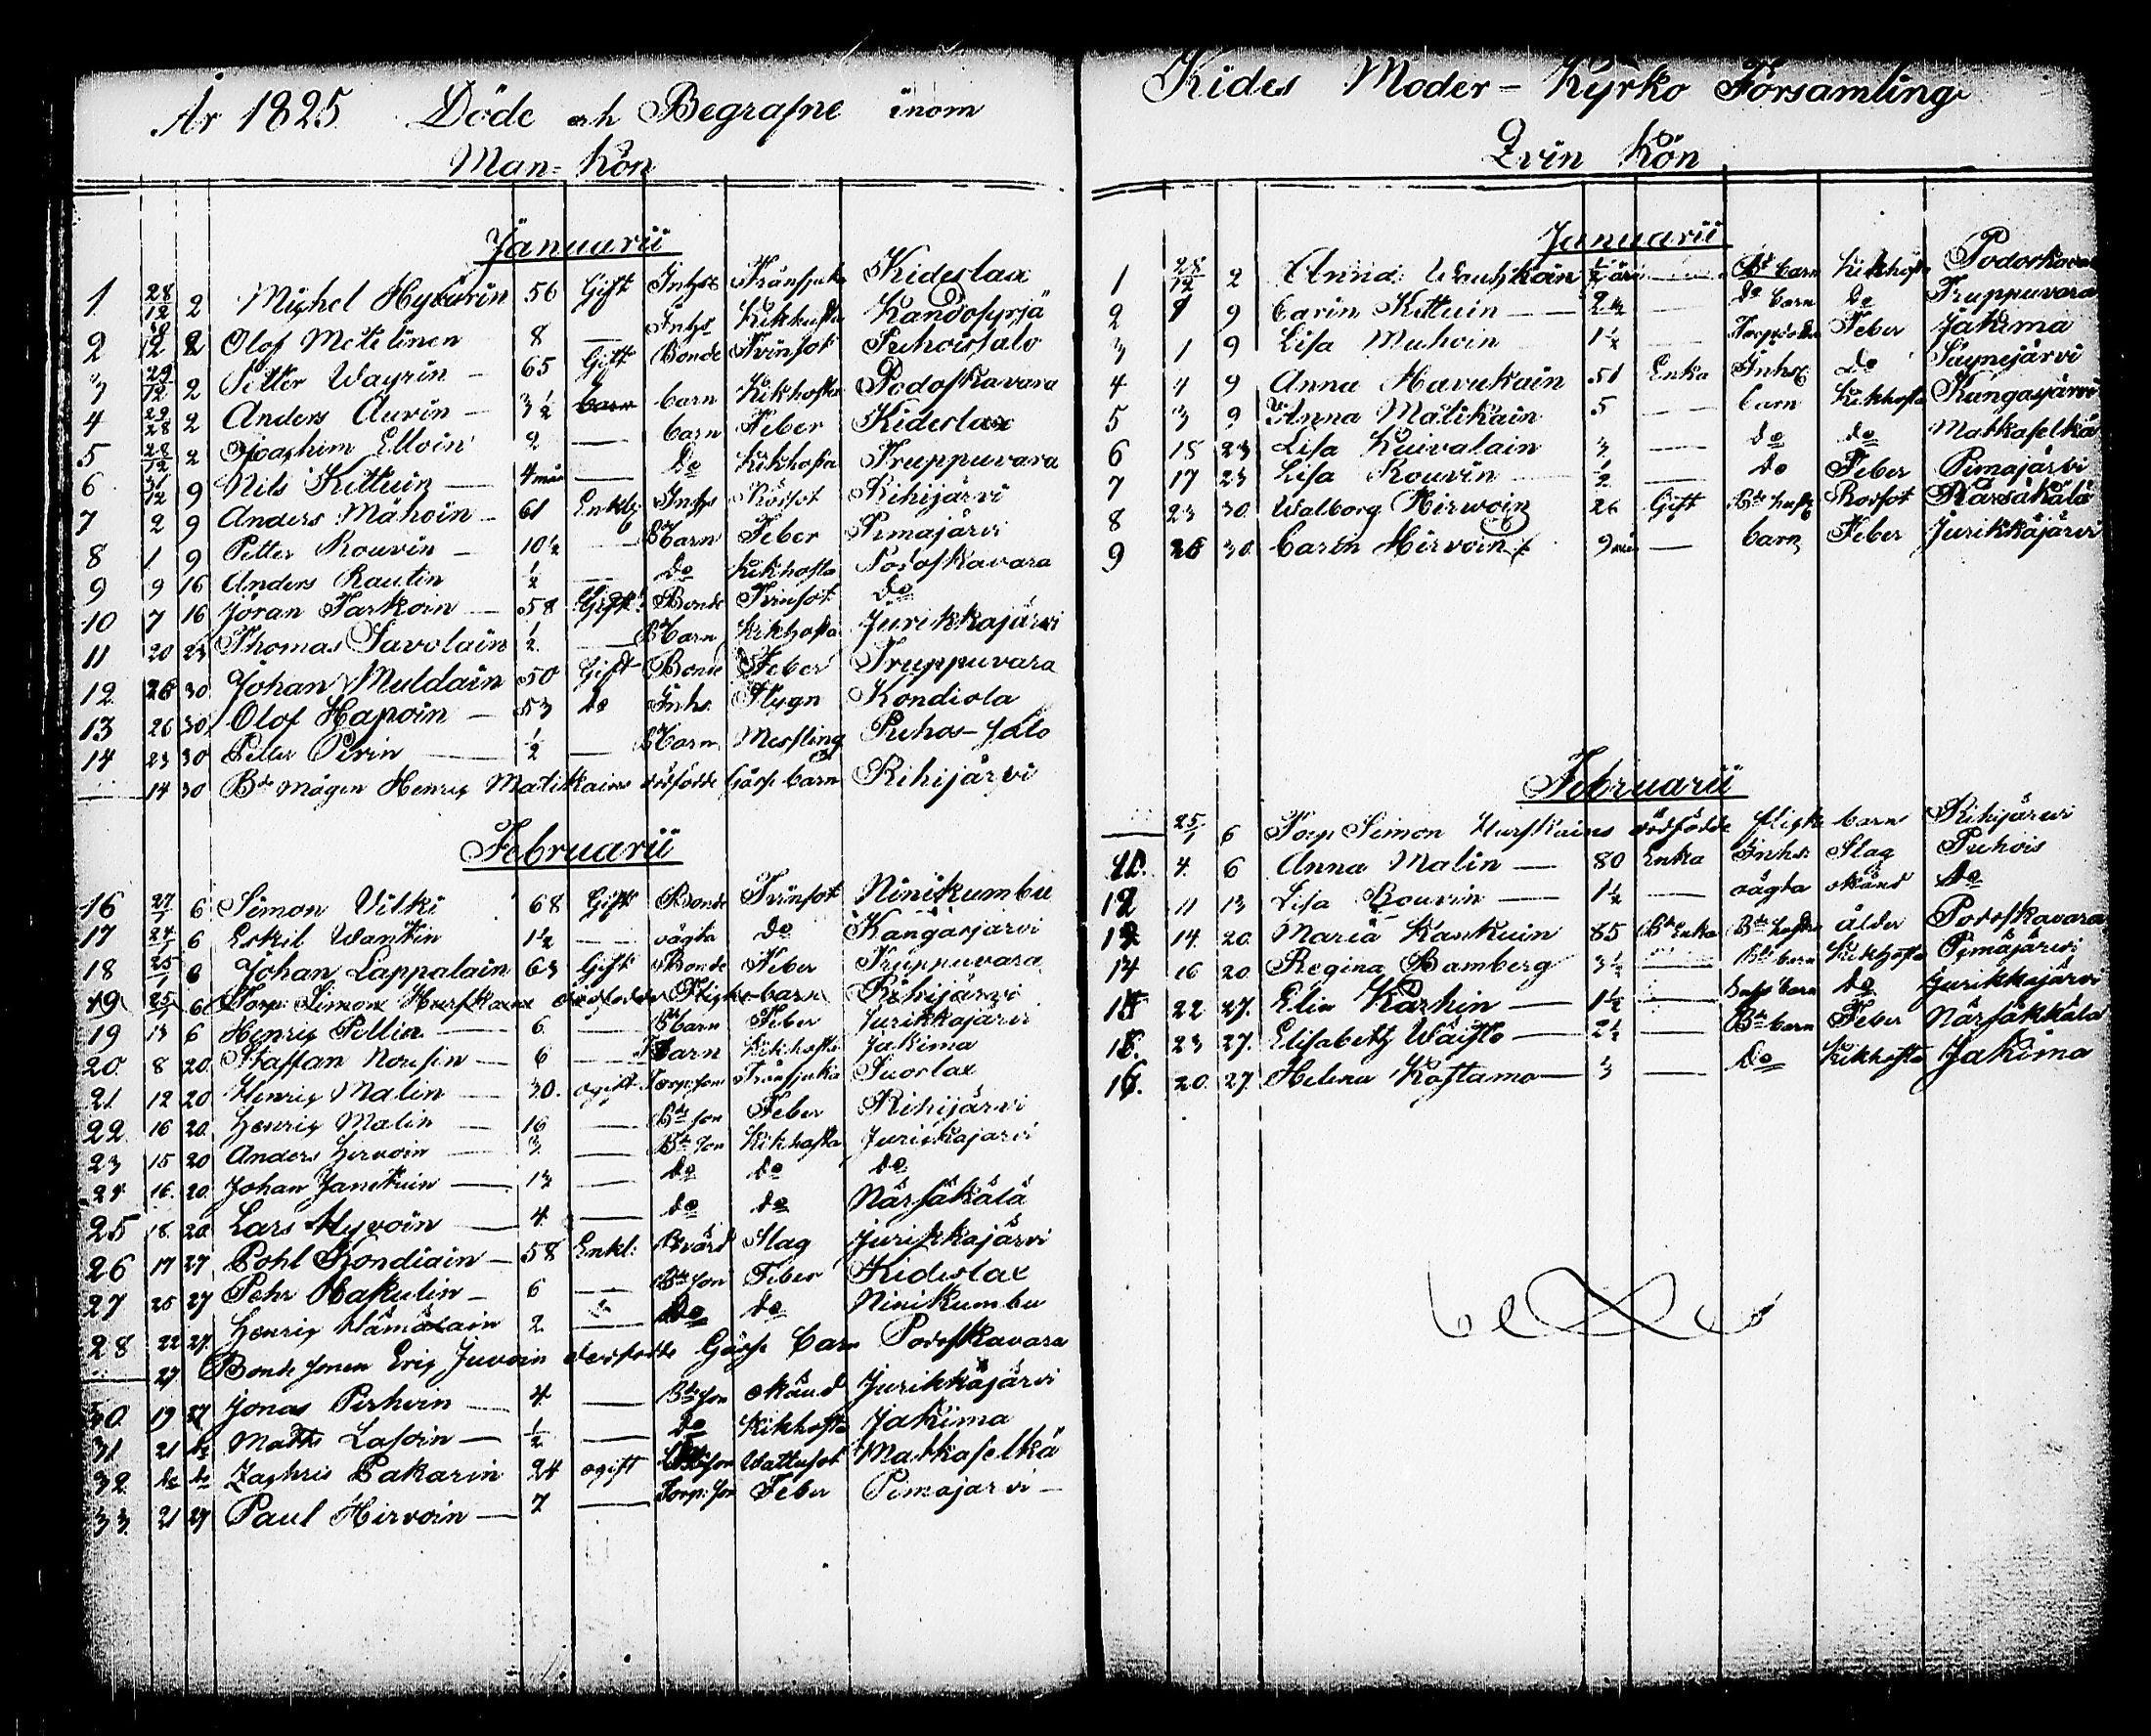 År 1825 Döde och Begrafne inom
Man-Kön
Januarii
1 28/12 2 Michel Hyvärin 56 Gift Inhys Kideslax
2 2 Olof Metelinen 8 — Inhys Kikhosta
3 29/12 2 Petter Wayrin — 65 Gift Bonde Tvinsot Puhoissalo
4 2 Anders Auvin — 3½ barn Kikhosta Podoskavara
5 28/12 2 Joachim Elloin 2 — barn Feber Kideslax
6 31/12 9 Nils Kettuin — 4 mån — do Kikhosta Truppuvara
7 2 9 Anders Mähöin — 61 Enkl. Inhys Rössot Rihijärvi
8 1 9 Petter Rouvin — 10½ — Bd barn Feber Pimajärvi
9 9 16 Anders Rautin ½ — do Kikhosta Podoskavara
10 7 16 Jöran Tarkoin — 58 Gift Bonde Tvinsot do
11 20 23 Thomas Savolain ½ — Bd barn Kikhosta Jurikkajärvi
12 26 30 Johan Muldain 50 Gift Bonde Feber Truppuvara
13 26 30 Olof Hapoin — 53 do Inhs. Hygn Kondiola
14 23 30 Petter Pirin — ½ — Bd barn Messling Puhos-salo
— 14 30 Bde mågen Henric Matikains dödfödde Gåsse barn Rihijärvi
Februarii
16 27/1 6 Simon Vilki 68 Gift Bonde Tvinsot Ninikumbu
17 24/1 6 Eskil Wantin 1½ — oägta do Kangasjärvi
18 25/1 6 Johan Lappalain 63 Gift Bonde Feber Truppuvara
19 25/1 6 Torp. Simon Hurskains dödfödde Flicke-barn Rihijärvi
19 13 6 Henric Pellin — 6 — Bd barn Feber Jurikkajärvi
20 8 20 Staffan Nousin — 6 — barn Kikhosta Jakima
21 12 20 Henric Malin — 30 ogift Torp. son Suorlax
22 16 20 Henric Malin — 16 — Bde son Feber Rihijärvi
23 15 20 Anders Hirvoin — 3 — Bde son Kikhosta Jurikkajärvi
24 16 20 Johan Janskuin — 13 — do do do
25 18 20 Lars Hyvöin — 4 — do do Närsäkälä
26 17 27 Pohl Kondiain — 58 Enkl: Slag Jurikkajärvi
27 25 27 Pehr Hakulin — 6 — Bde son Feber Kideslax
28 22 27 Henric Hämäläin 2 — do do Ninikumbu
— 27 Bonde sonen Eric Juvoin dödfödde Gåsse barn Podoskavara
30 19 27 Jonas Pirhoin — 4 — Bde son okänd Jurikkajärvi
31 21 do Matts Lasoin — ½ — do Kikhosta Jakima
32 do do Zachris Pakarin 24 ogift son Wattusot Matkaselkä
33 21 27 Paul Hirvoin — 7 — Torp. son Feber Pimajärvi —
Kides Moder-Kyrko Församling
Qvin Kön
Januarii
1 28/12 2 Anna ½ år — Bd barn Kikhosta Podoskavara
2 1 9 Carin Kettuin — 2½ — do barn do Truppuvara
3 1 9 Lisa Muhoin 1½ — Feber Jakima
4 4 9 Anna Havukain 51 Enka Inhs do Suynejärvi
5 3 9 Anna Matikain 5 — barn Kikhosta Kangasjärvi
6 15 23 Lisa Kuivalain 3 — do do Matkaselkä
7 17 23 Lisa Rouvin ½ — do Feber Pimajärvi
8 23 30 Walborg Hirwoin 26 Gift Bde hust Rossot Närsäkälä
9 26 30 Carin Hirvoin 9 mån — barn Feber Jurikkajärvi
Februarii
— 25/1 6 Torp Simon Hurskains dödfödde flicke barn Rihijärvi
4 6 Anna Malin — 80 Enka Inhs. Slag Puhois
12 11 13 Lisa Rouvin — 1½ — oägta okänd do
14 20 Maria Kaukuin 85 Bd Enka ålder Podoskavara
14 16 20 Regina Bamberg 3½ — Bde barn Kikhosta Pimäjärvi
15 22 27 Elin Karhin — 1½ — Inhs barn do Jurikkajärvi
23 27 Elisabeth Wäistö — 2½ — Bde barn Feber Närsäkkälä
16 20 27 Helena Kostamo — 3 — do Kikhosta Jakima